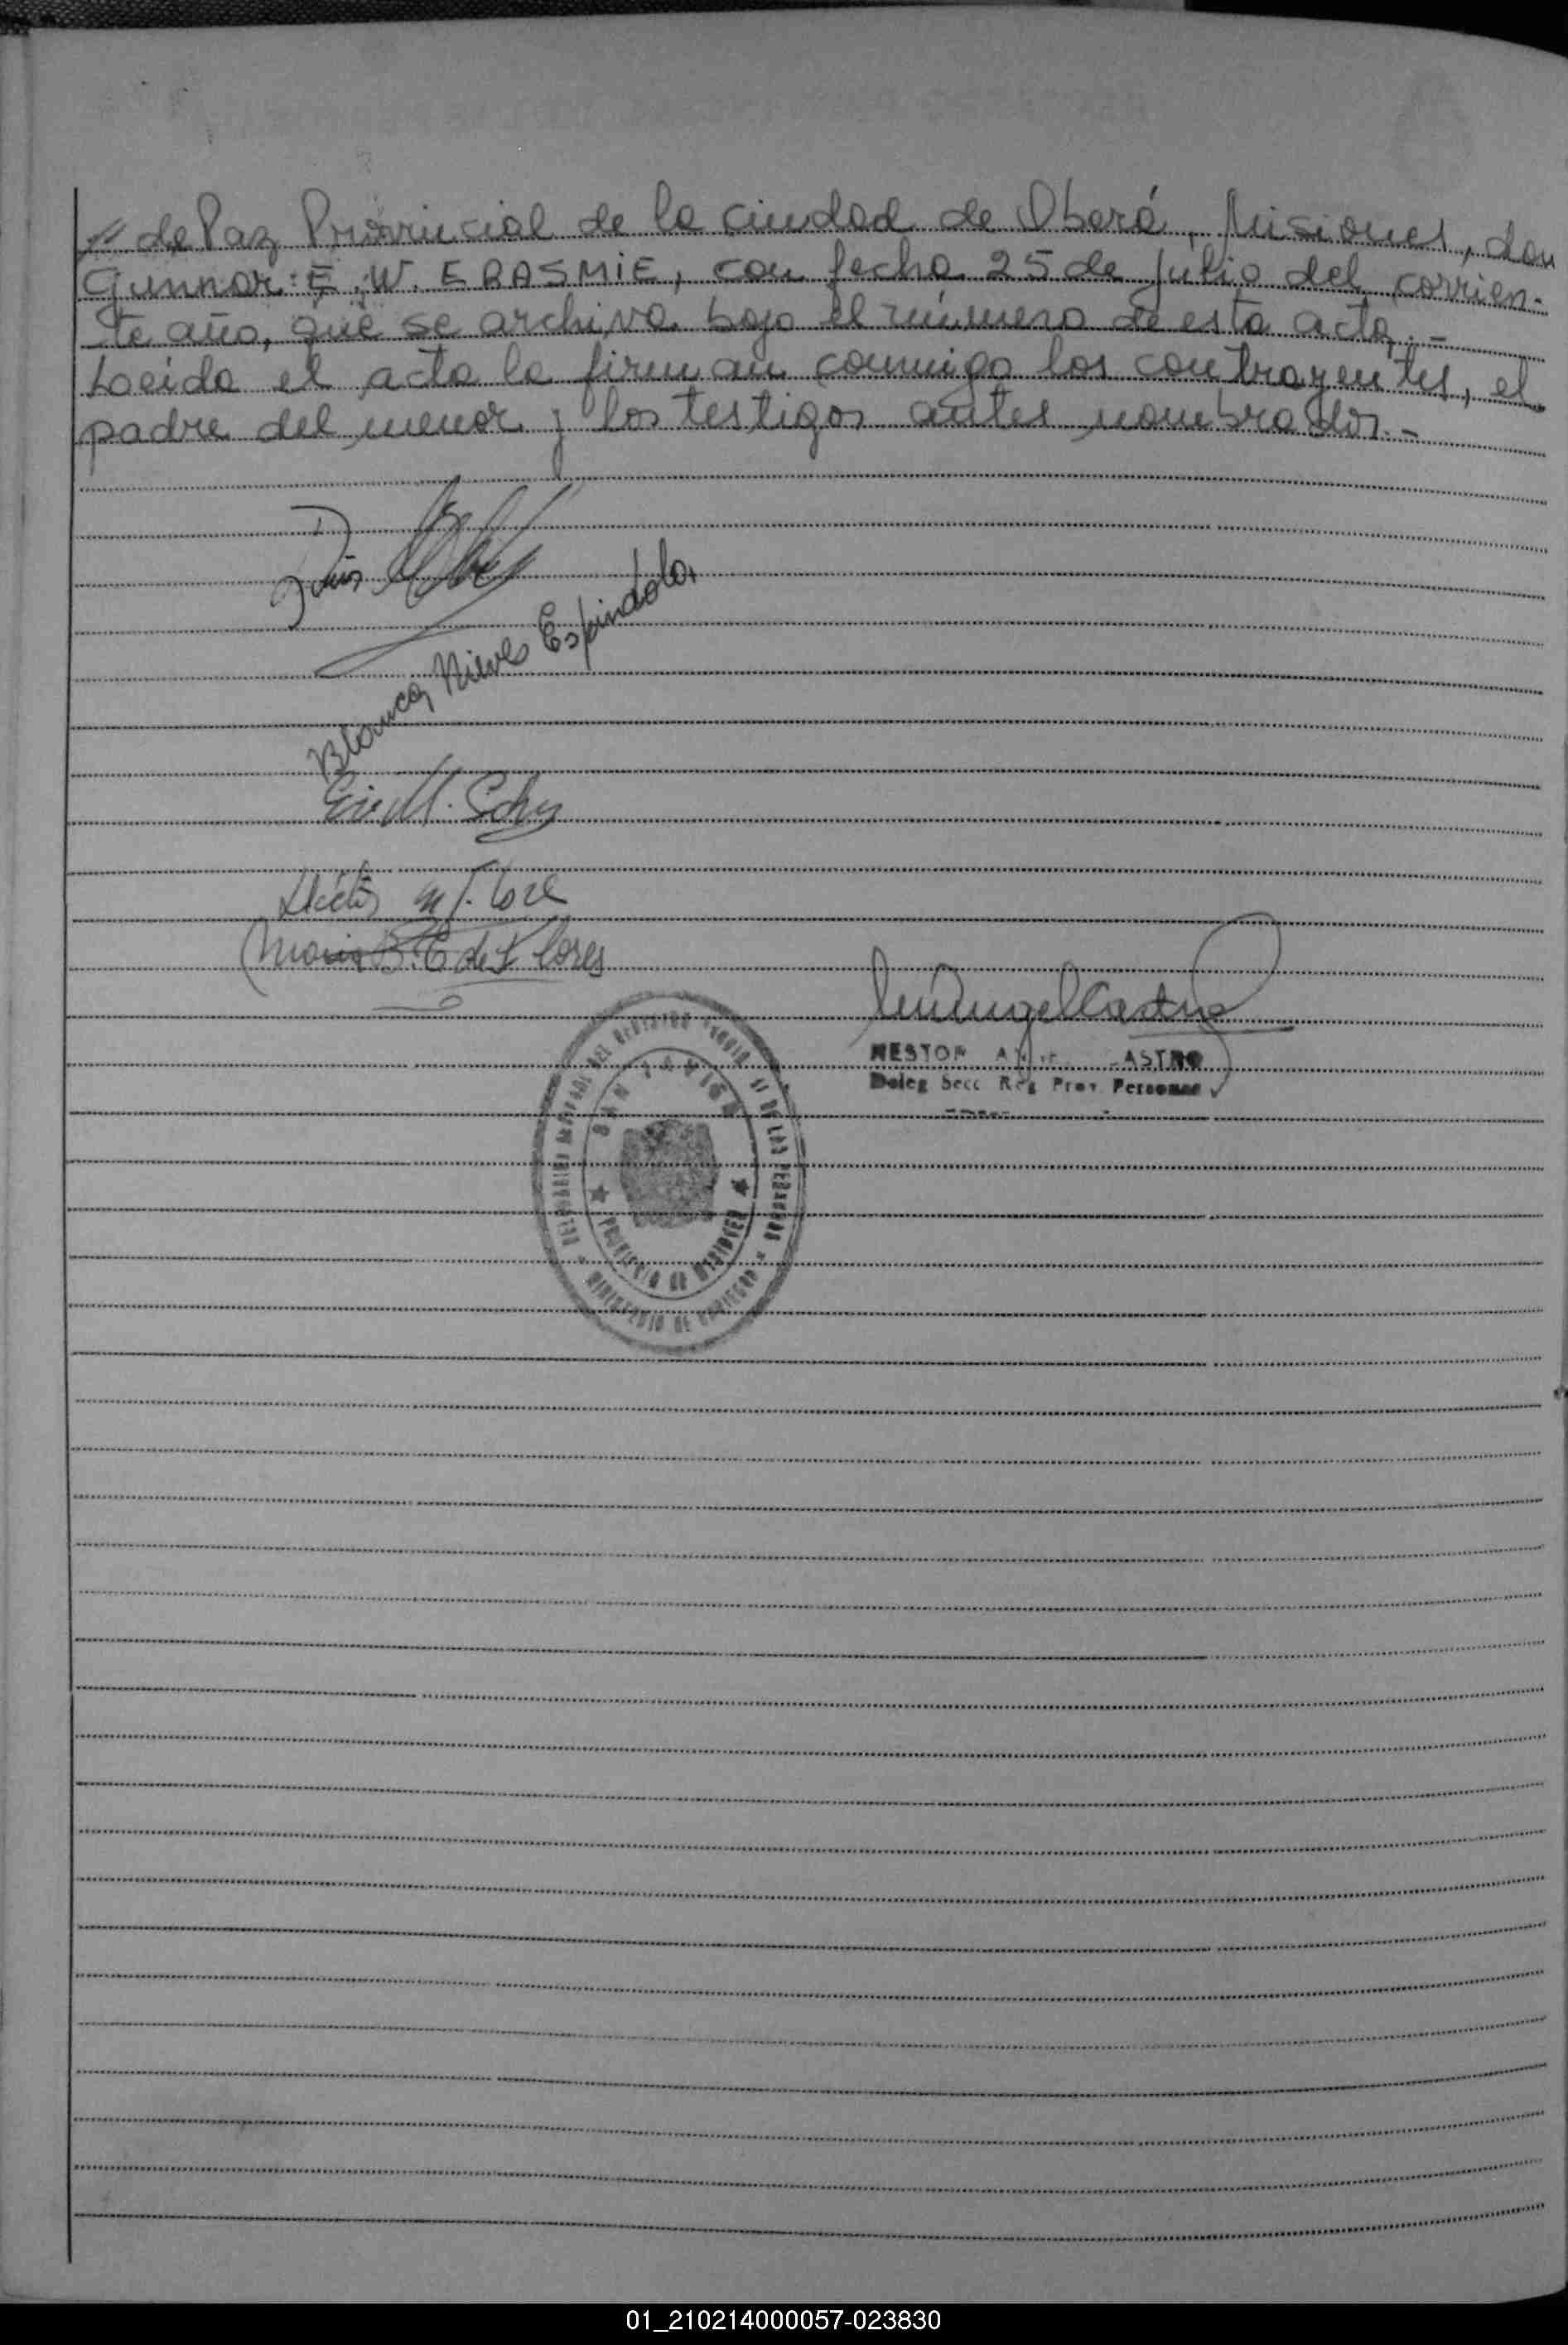 // de Paz Provincial de la ciudad de Oberá, Misiones, don
Gunnar E. W. ERASMIE, con fecha 25 de julio del corrien-
te año, que se archiva bajo el número de esta acta.-
Leída el acta la firman conmigo los contrayentes, el
padre del menor y los testigos antes nombrados.-
Luis
Blanca Nieves Espindola
M.
Maria B. C de Flores
NESTOR ASTRO
Deleg Secc Reg Prov. Personas
SAN JAVIER
PROVINCIA DE MISIONES
DEL REGISTRO PROVINCIAL DE LAS PERSONAS
MINISTERIO DE GOBIERNO
01_210214000057-023830